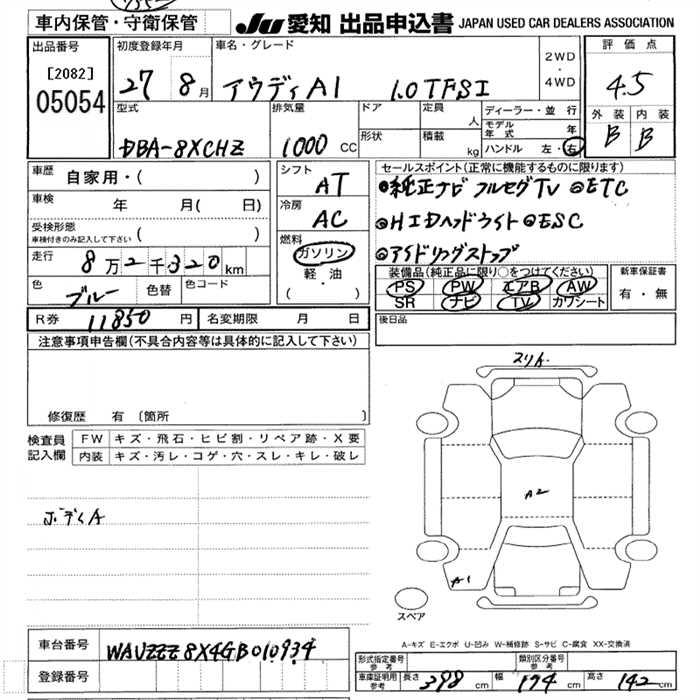 車内保管・守衛保管
JU 愛知 出品申込書 JAPAN USED CAR DEALERS ASSOCIATION
出品番号
[2082]
05054
初度登録年月
27 8 月
車名・グレード
アウディA1 1.0TFSI
2WD
・
4WD
評価点
4.5
外装 内装
B B
型式
DBA-8XCHZ
排気量
1000 CC
ドア
形状
定員
人
積載
kg
ディーラー・並行
モデル年式 年
ハンドル 左・右
車歴 自家用・( )
車検 年 月( 日)
受検形態
車検付きのみ記入して下さい ( )
走行 8万2千320km
色 ブルー 色替 色コード
シフト
AT
冷房
AC
燃料
ガソリン
軽・油
( )
セールスポイント(正常に機能するものに限ります)
●純正ナビ フルセグTV ●ETC
●HIDヘッドライト ●ESC
●アイドリングストップ
装備品(純正品に限り○をつけてください)
PS PW エアB AW
SR ナビ TV カワシート
新車保証書
有・無
R券 11850 円 名変期限 月 日
後日品
注意事項申告欄(不具合内容等は具体的に記入して下さい)
修復歴 有 〔箇所 〕
検査員記入欄
FW キズ・飛石・ヒビ割・リペア跡・X要
内装 キズ・汚レ・コゲ・穴・スレ・キレ・破レ
ボディA
スリキ
A2
A1
スペア
A-キズ E-エクボ U-凹み W-補修跡 S-サビ C-腐食 XX-交換済
車台番号 WAUZZZ8X4GB010934
登録番号
形式指定番号 参考
類別区分番号 参考
車庫証明用 参考 長さ 398 cm 幅 174 cm 高さ 142 cm